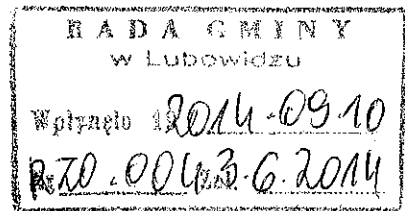 RADA GMINY
w Lubowidzu
Wpłynęło 2014-09-10
RŻO.0043.6.2014